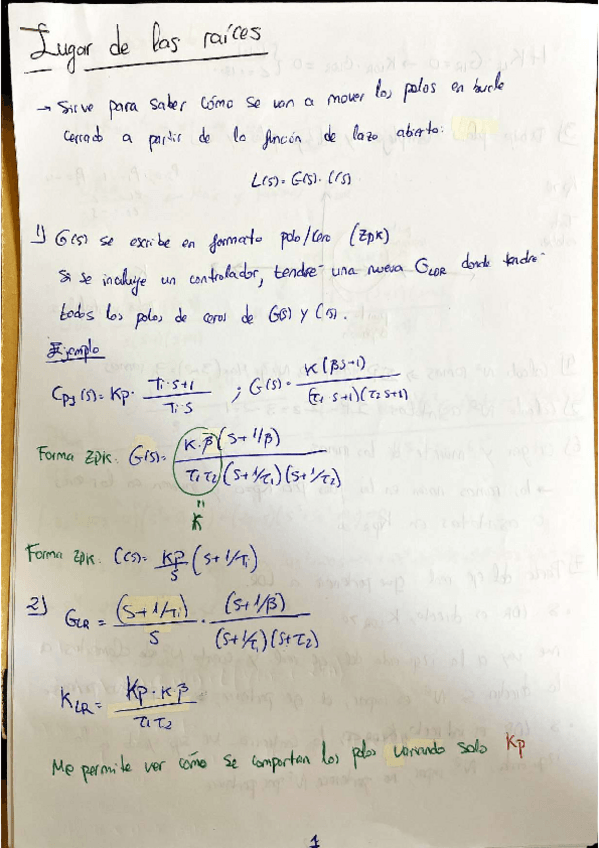 Lugar de las raíces
→ Sirve para saber cómo se van a mover los polos en bucle
cerrado a partir de la función de lazo abierto:
L(s) = G(s) · C(s)
1) G(s) se escribe en formato polo/cero (ZPK)
Si se incluye un controlador, tendré una nueva G_LDR donde tendré
todos los polos de ceros de G(s) y C(s).
Ejemplo
C_PI(s) = Kp · (Ti·s+1)/(Ti·s) ; G(s) = K(βs+1)/((τ1 s+1)(τ2 s+1))
Forma ZPK. G(s) = K·β(s+1/β)/(τ1τ2(s+1/τ1)(s+1/τ2))
"
K
Forma ZPK. C(s) = Kp/s (s+1/Ti)
2) G_LR = (s+1/Ti)/s · (s+1/β)/((s+1/τ1)(s+τ2))
K_LR = Kp·K·β/(τ1τ2)
Me permite ver cómo se comportan los polos variando solo Kp
1